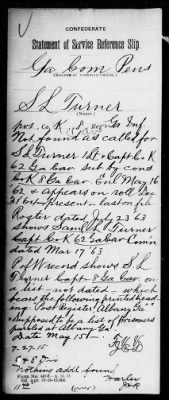 CONFEDERATE
Statement of Service Reference Slip.
Ga Com Pens
(Name or commands noted.)
S L Turner
(Name.)
pvt. co K, 8, Regt Ga Inf
Not found as called for
S L Turner 1 Lt & Capt Co K
62 Ga Cav
Co K 8 Ga Cav Enl May 16
62 & appears on roll Dec
31 64 present - last on file
Roster dated July 23 63
shows Saml L Turner
Capt Co K 62 Ga Cav Com
dated Mar 17 63
P of W record shows S L
Turner Capt 8 Ga Cav on
list - not dated - which
bears the following printed head-
ing: "Post Register, Albany Ga
supposed to be a list of prisoners
paroled at Albany Ga"
Date May 15
Nothing addl found
(over)